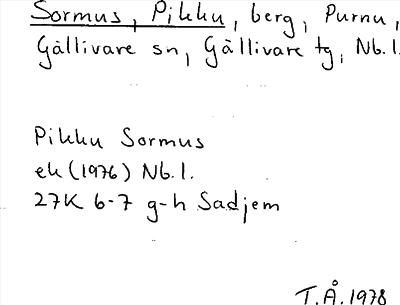 Sormus, Pikku, berg, Purnu,
Gällivare sn, Gällivare tg, Nb.l.
Pikku Sormus
ek (1976) Nb.l.
27K 6-7 g-h Sadjem
T.Å. 1978